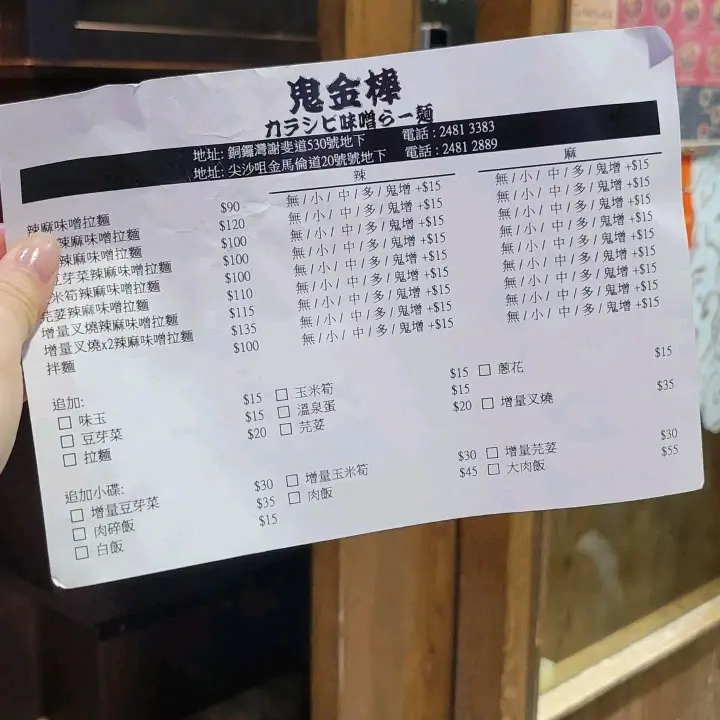 鬼金棒
カラシビ味噌らー麺
地址: 銅鑼灣謝斐道530號地下 電話: 2481 3383
地址: 尖沙咀金馬倫道20號號地下 電話: 2481 2889
辣 麻
辣麻味噌拉麵 $90 無/小/中/多/鬼增 +$15 無/小/中/多/鬼增 +$15
辣麻味噌拉麵 $120 無/小/中/多/鬼增 +$15 無/小/中/多/鬼增 +$15
辣麻味噌拉麵 $100 無/小/中/多/鬼增 +$15 無/小/中/多/鬼增 +$15
豆芽菜辣麻味噌拉麵 $100 無/小/中/多/鬼增 +$15 無/小/中/多/鬼增 +$15
米筍辣麻味噌拉麵 $100 無/小/中/多/鬼增 +$15 無/小/中/多/鬼增 +$15
芫荽辣麻味噌拉麵 $110 無/小/中/多/鬼增 +$15 無/小/中/多/鬼增 +$15
增量叉燒辣麻味噌拉麵 $115 無/小/中/多/鬼增 +$15 無/小/中/多/鬼增 +$15
增量叉燒x2辣麻味噌拉麵 $135 無/小/中/多/鬼增 +$15 無/小/中/多/鬼增 +$15
拌麵 $100 無/小/中/多/鬼增 +$15 無/小/中/多/鬼增 +$15
追加:
味玉 $15 玉米筍 $15 蔥花 $15
豆芽菜 $15 溫泉蛋 $15 增量叉燒 $35
拉麵 $20 芫荽 $20
追加小碟:
增量豆芽菜 $30 增量玉米筍 $30 增量芫荽 $30
肉碎飯 $35 肉飯 $45 大肉飯 $55
白飯 $15